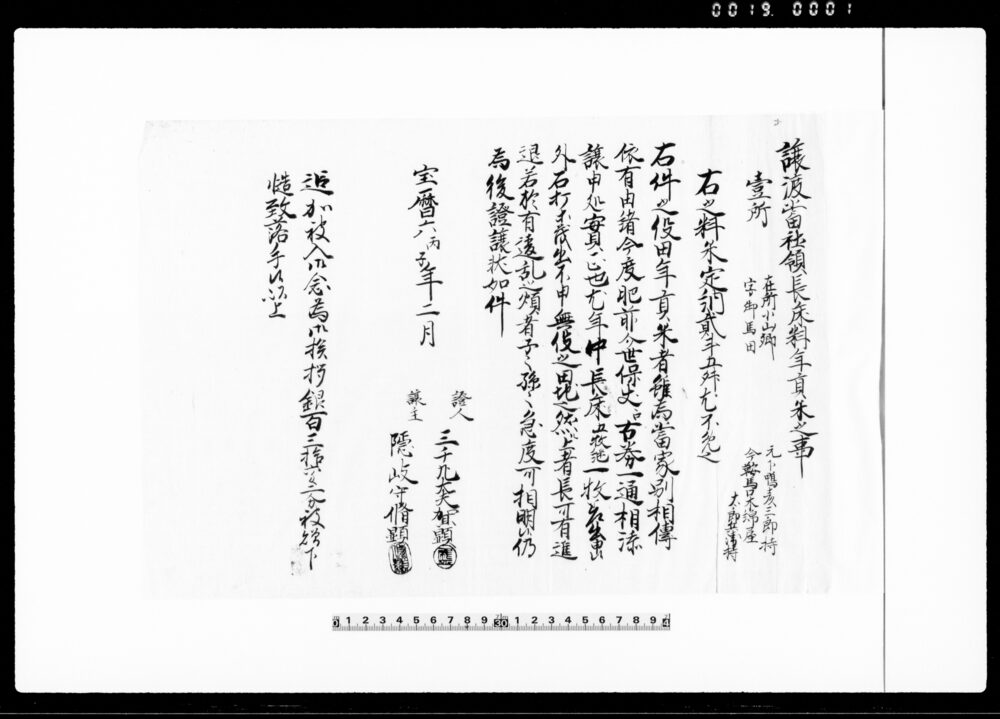 0019 0001
譲渡當社領長床料年貢米之事
壹所 在所小山郷 元下鴨亥三郎持
字御馬田 今鞍馬口木綿屋
太郎兵衛持
右之料米定納貳斗五升尤不免之
右件之役田年貢米者雖為當家別相傳
依有由緒今度肥前介世保丈江古券一通相添
譲申処実正也尤年中長床 一枚
外石打 出不申無役之田地之然上者長可有進
退若於有違乱之煩者子々孫々急度可相明候仍
為後證譲状如件
宝暦六丙子年二月
證人
譲主 隠岐守脩顕
追加被入御念為御挨拶銀百三拾 分被
慥致落手候以上
0 1 2 3 4 5 6 7 8 9 30 1 2 3 4 5 6 7 8 9 4